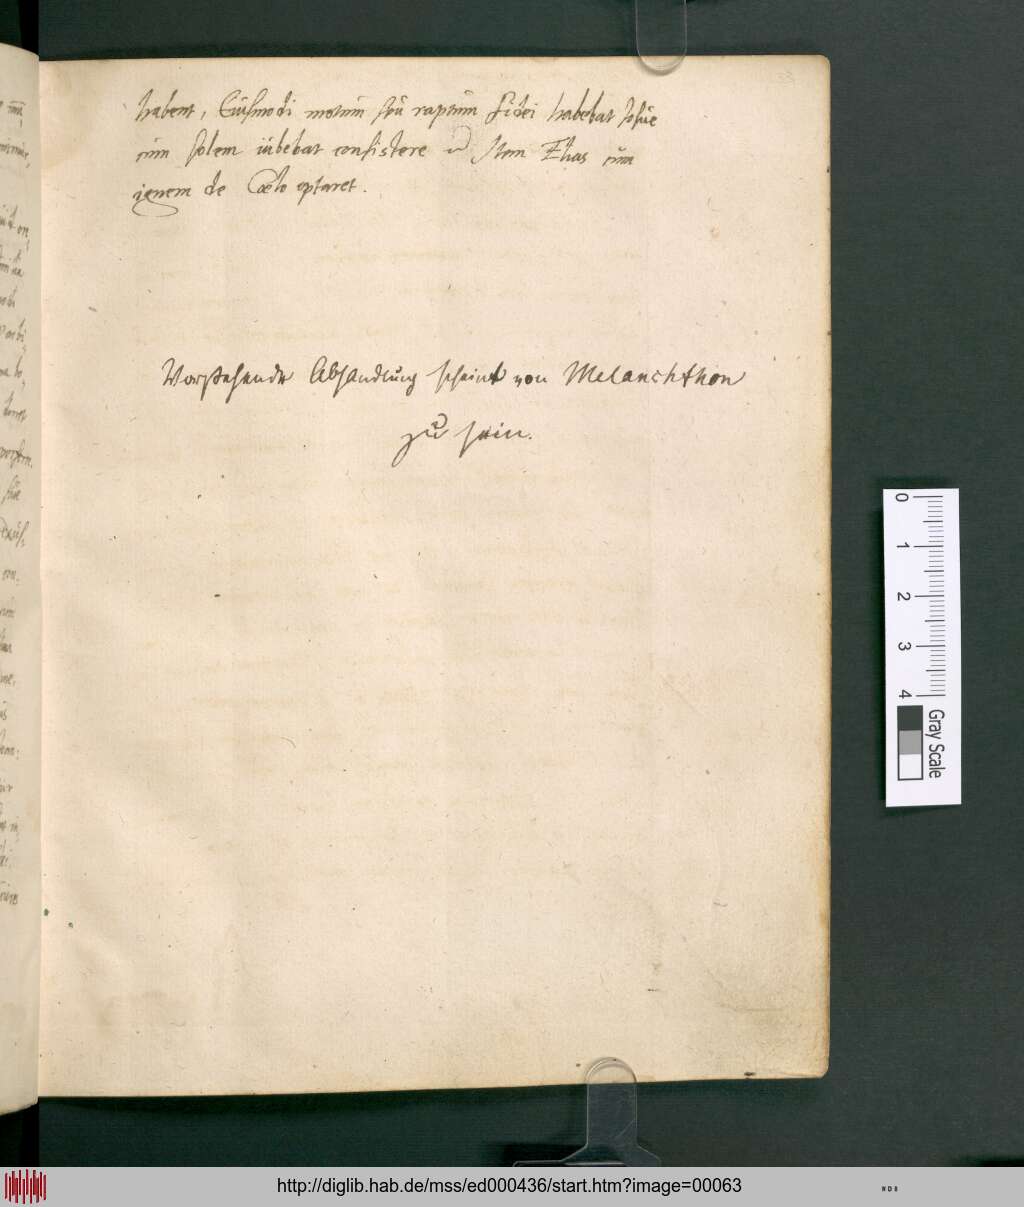 habent, Eiusmodi motum seu raptum fidei habebat Josue
cum solem iubebat consistere Item Elias cum
ignem de Cœlo optaret.
Vorstehende Abhandlung scheint von Melanchthon
zu sein.
0
1
2
3
4
Gray Scale
http://diglib.hab.de/mss/ed000436/start.htm?image=00063